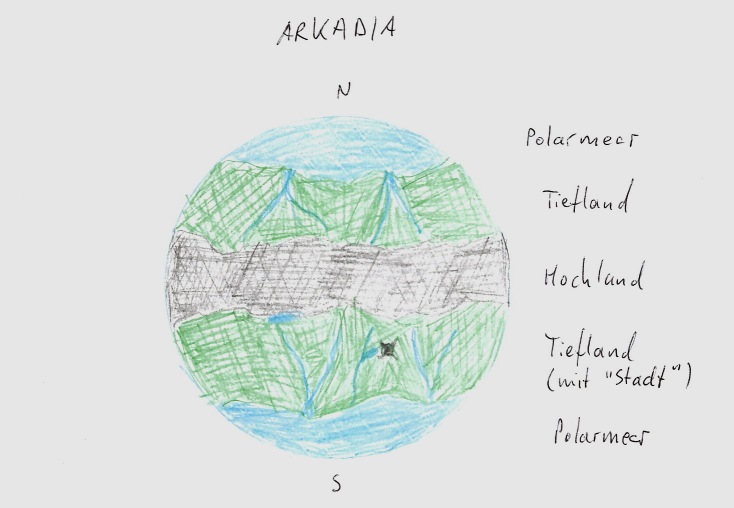 ARKADIA
N
Polarmeer
Tiefland
Hochland
Tiefland
(mit "Stadt")
Polarmeer
S